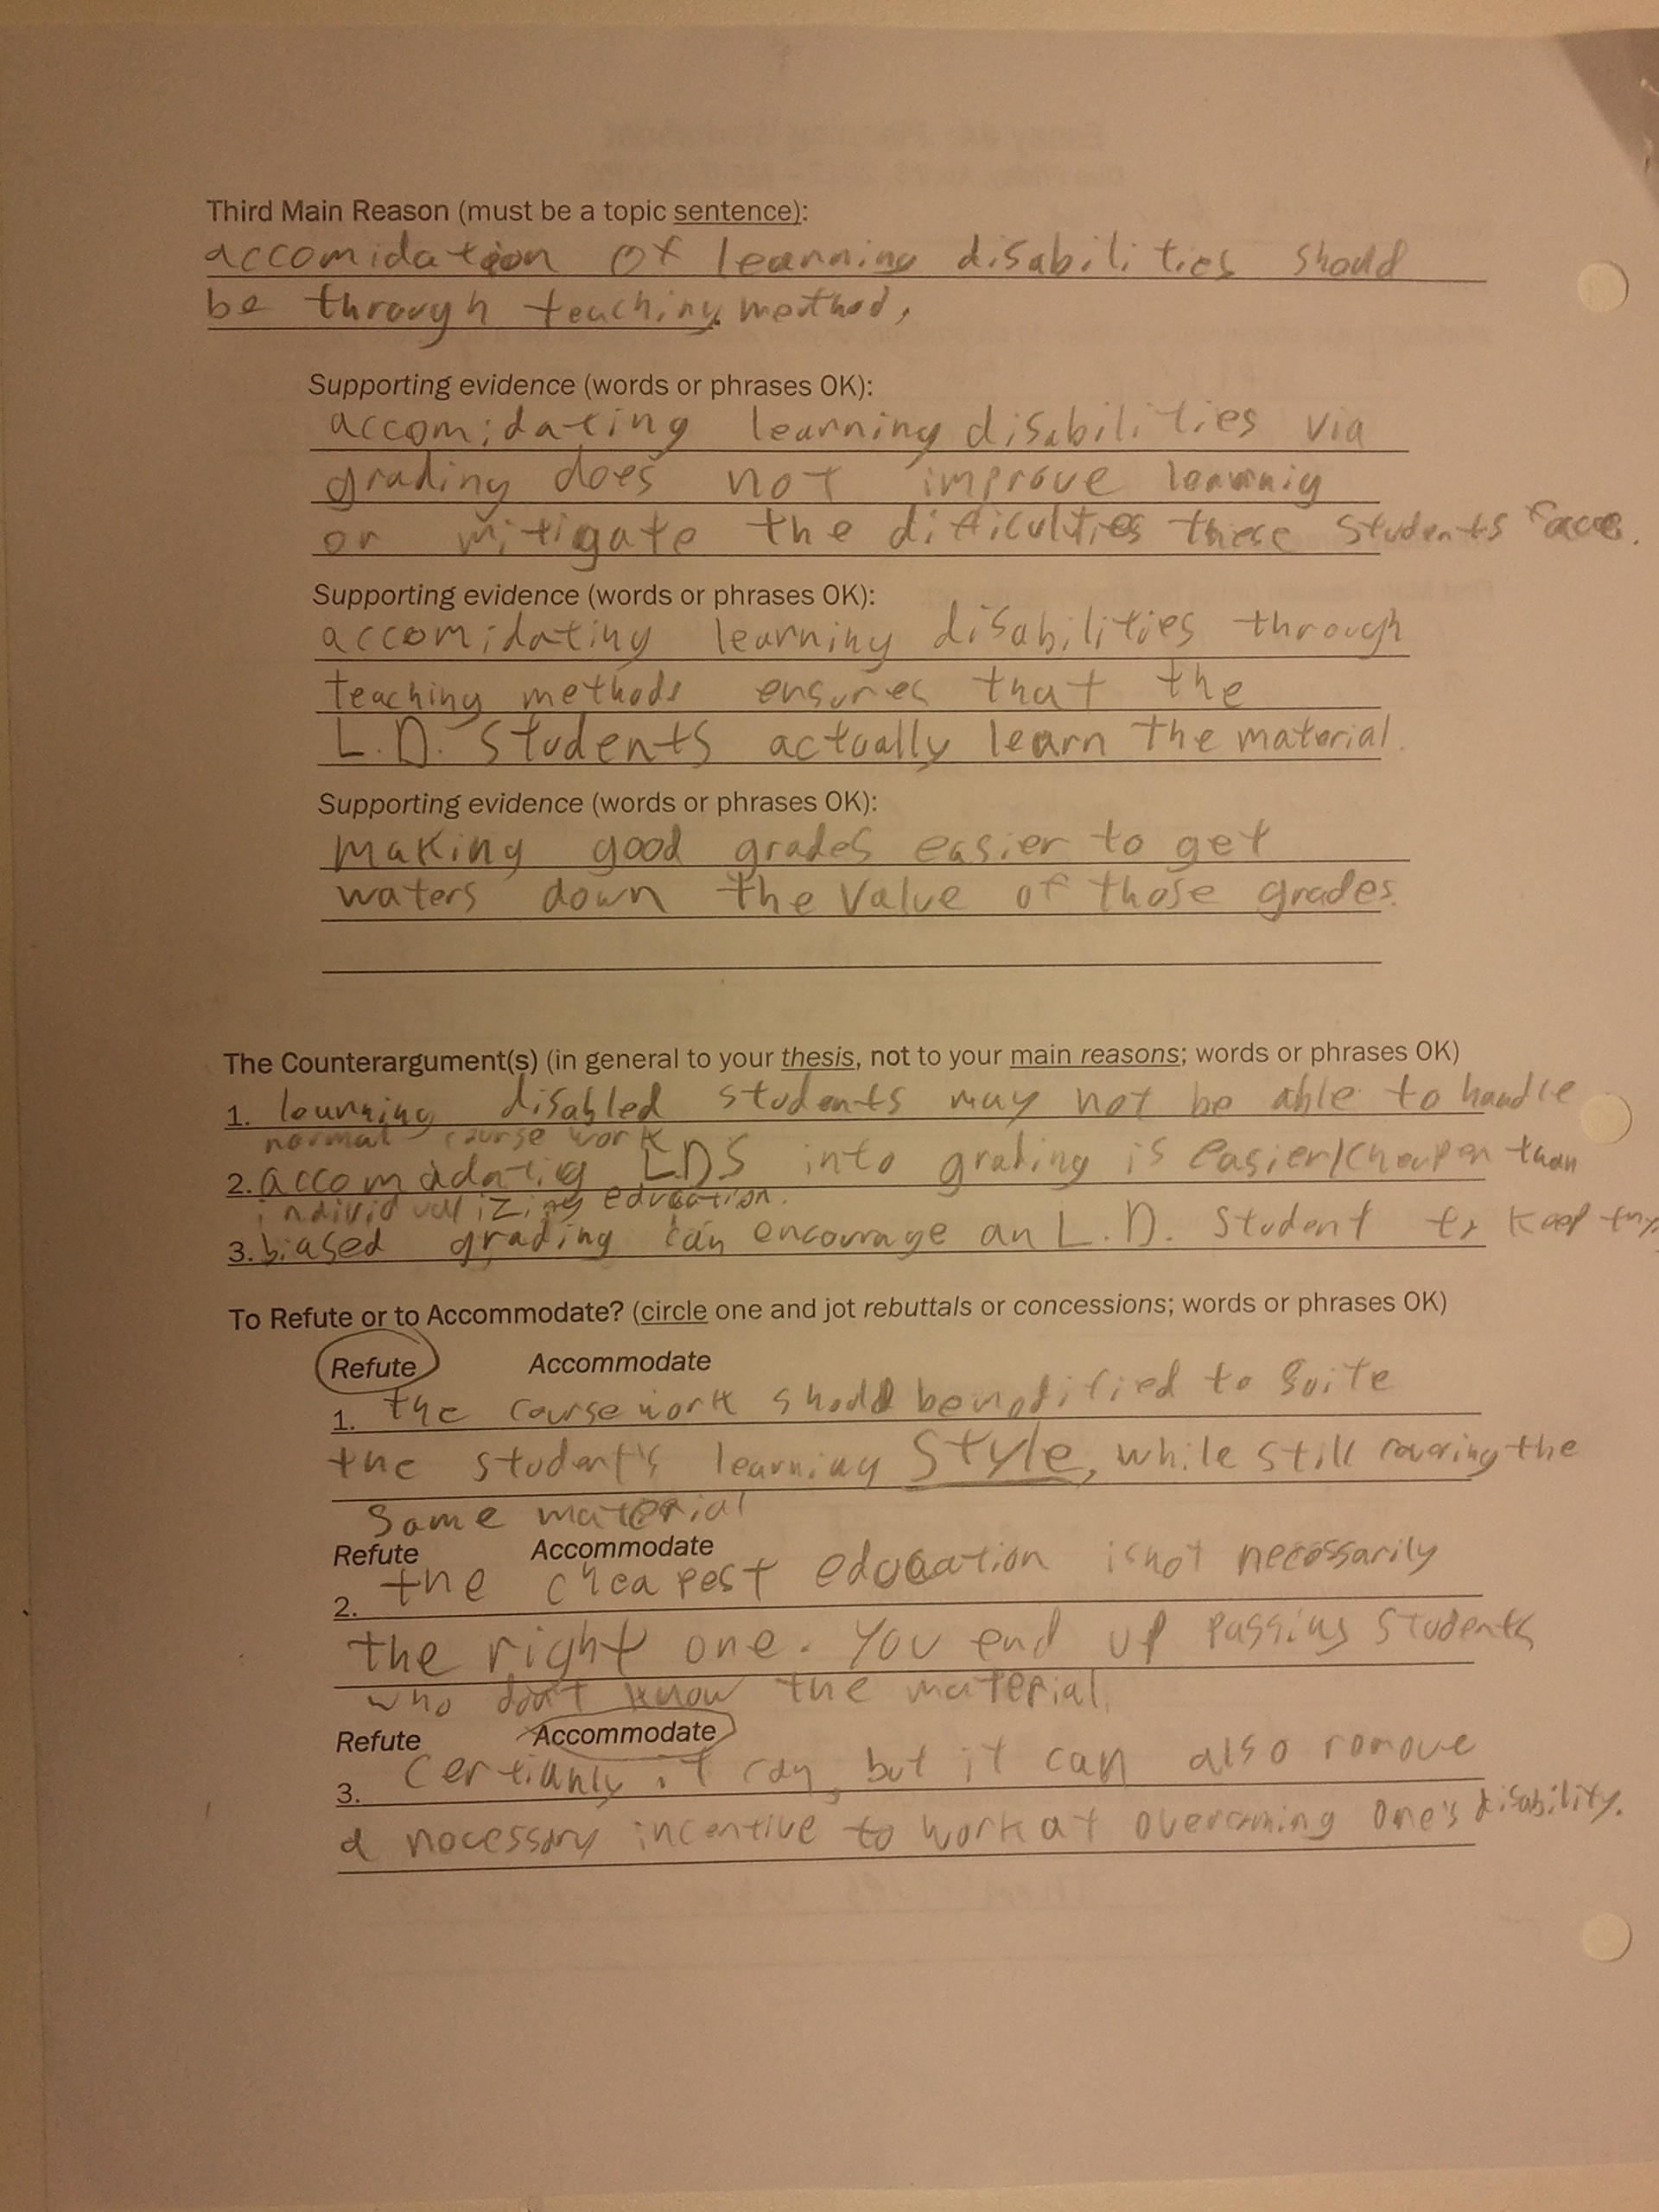 Third Main Reason (must be a topic sentence):
accomidation of learning disabilities should
be through teaching method,
Supporting evidence (words or phrases OK):
accomidating learning disabilities via
grading does not improve learnnig
or mitigate the difficulties these students face.
Supporting evidence (words or phrases OK):
accomidating learning disabilities through
teaching methods ensures that the
L.D. students actually learn the material.
Supporting evidence (words or phrases OK):
making good grades easier to get
waters down the value of those grades.
The Counterargument(s) (in general to your thesis, not to your main reasons; words or phrases OK)
1. learning disabled students may not be able to handle
normal course work
2. accomadatig LDS into grading is easier/cheaper than
individualizing education.
3. biased grading can encourage an L.D. student to keep
To Refute or to Accommodate? (circle one and jot rebuttals or concessions; words or phrases OK)
Refute Accommodate
1. the coursework should be modified to suite
the student's learning style, while still covering the
same material
Refute Accommodate
2. the cheapest education is not necessarily
the right one. You end up passing students
who don't know the material.
Refute Accommodate
3. certianly it can, but it can also remove
a necessary incentive to work at overcoming one's disability.